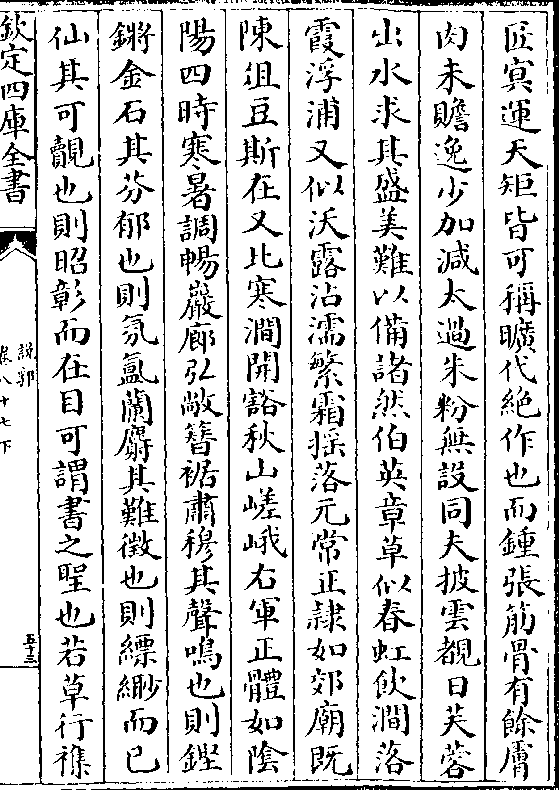 匠㝠運天矩皆可稱曠代絶作也而鍾張筋骨有餘膚
肉未贍逸少加減太過朱粉無設同夫披雲覩日芙蓉
出水求其盛美難以備諸然伯英章草似春虹飲澗落
霞浮浦又似沃露沾濡繁霜揺落元常正隸如郊廟既
陳俎豆斯在又比寒澗開豁秋山嵯峨右軍正體如隂
陽四時寒暑調暢巖廊弘敞簮裾肅穆其聲鳴也則鏗
鏘金石其芬郁也則氛氲蘭麝其難徵也則縹緲而已
仙其可覿也則昭彰而在目可謂書之聖也若草行襍
欽定四庫全書
説郛
卷八十七下
五十三